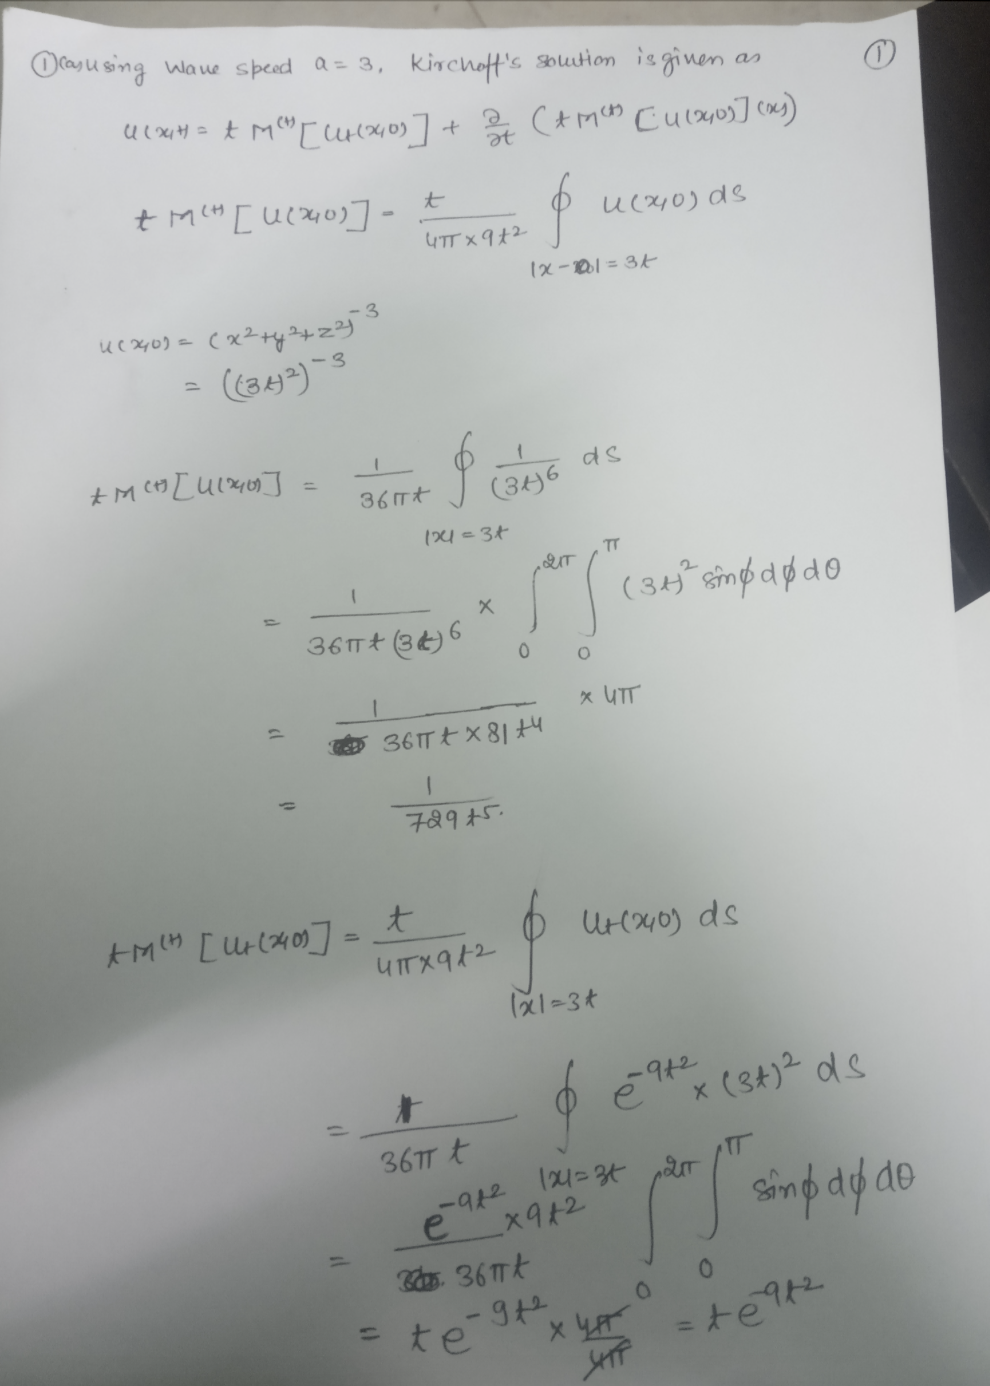 ① (a) using wave speed a = 3, Kirchoff's solution is given as
①
u(x,t) = t M^(t) [u_t(x,0)] + ∂/∂t (t M^(t) [u(x,0)] (x))
t M^(t) [u(x,0)] = t/(4π×9t²) ∮_{|x-0|=3t} u(x,0) ds
u(x,0) = (x²+y²+z²)^-3
= ((3t)²)^-3
t M^(t) [u(x,0)] = 1/(36πt) ∮_{|x|=3t} 1/(3t)^6 ds
= 1/(36πt(3t)^6) × ∫_0^2π ∫_0^π (3t)² sinϕ dϕ dθ
= 1/(36πt×81t^4) × 4π
= 1/(729t^5).
t M^(t) [u_t(x,0)] = t/(4π×9t²) ∮_{|x|=3t} u_t(x,0) ds
= 1/(36πt) ∮_{|x|=3t} e^(-9t²) × (3t)² ds
= (e^(-9t²) × 9t²)/(36πt) ∫_0^2π ∫_0^π sinϕ dϕ dθ
= t e^(-9t²) × 4π/4π = t e^(-9t²)